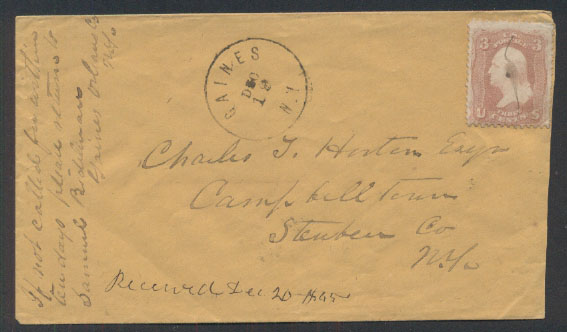 If not called for within
ten days please return to
Samuel Bidleman
Gaines Orleans Co
N.Y.
GAINES N.Y.
DEC
19
3 3
U S
Charles T. Horton Esqr
Campbelltown
Steuben Co
N.Y.
Received Dec 20 1865